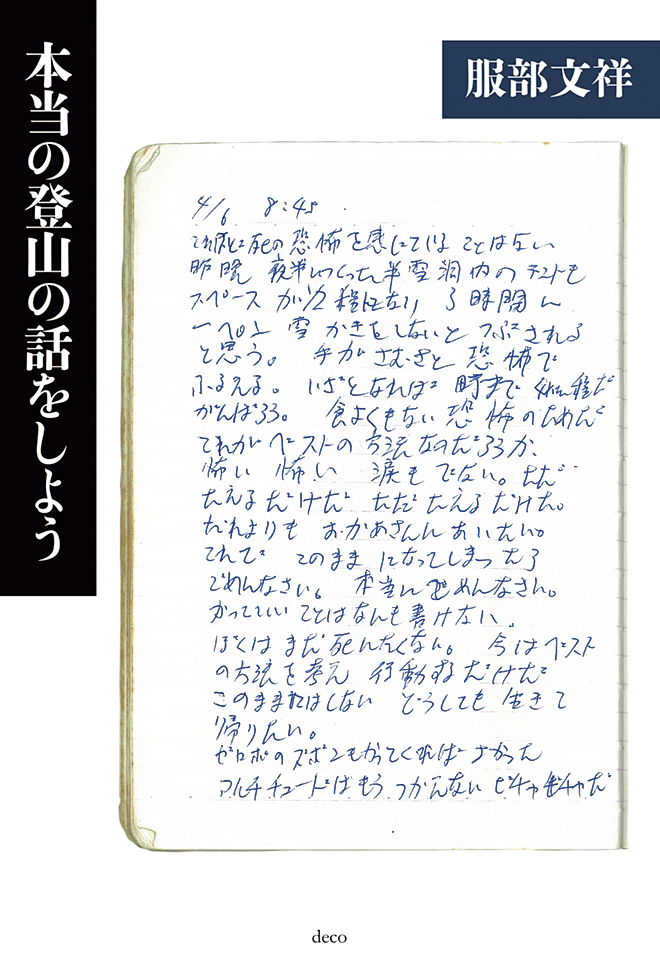 本当の登山の話をしよう
服部文祥
4/6 8:45
これ程に死の恐怖を感じていることはない
昨晩 夜半につくった半雪洞内のテントも
スペースが1/2程になり 3時間に
一ぺん 雪かきをしないと つぶされる
と思う。 手がさむさと恐怖で
ふるえる。 いざとなれば 時まで 程だ
がんば33。 食よくもない 恐怖のためだ
それがベストの方法なのだ33か、
怖い 怖い 涙もでない。ただ
たえるだけだ ただたえるだけだ。
だれよりも おかあさんにあいたい。
それで このままになってしまったら
ごめんなさい。 本当にごめんなさい。
かっこいいことはなんも書けない。
ぼくはまだ死にたくない。 今はベスト
の方法を考え 行動するだけだ
このままではしない どうしても生きて
帰りたい。
ゼロポのズボンもかってくればよかった
アルチチュードはもう つかえない ビチャビチャだ
deco